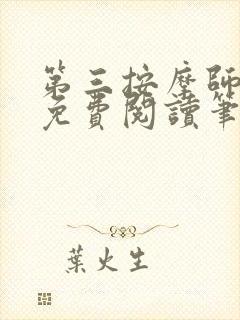 第三按摩師
免費閱讀筆
葉火生